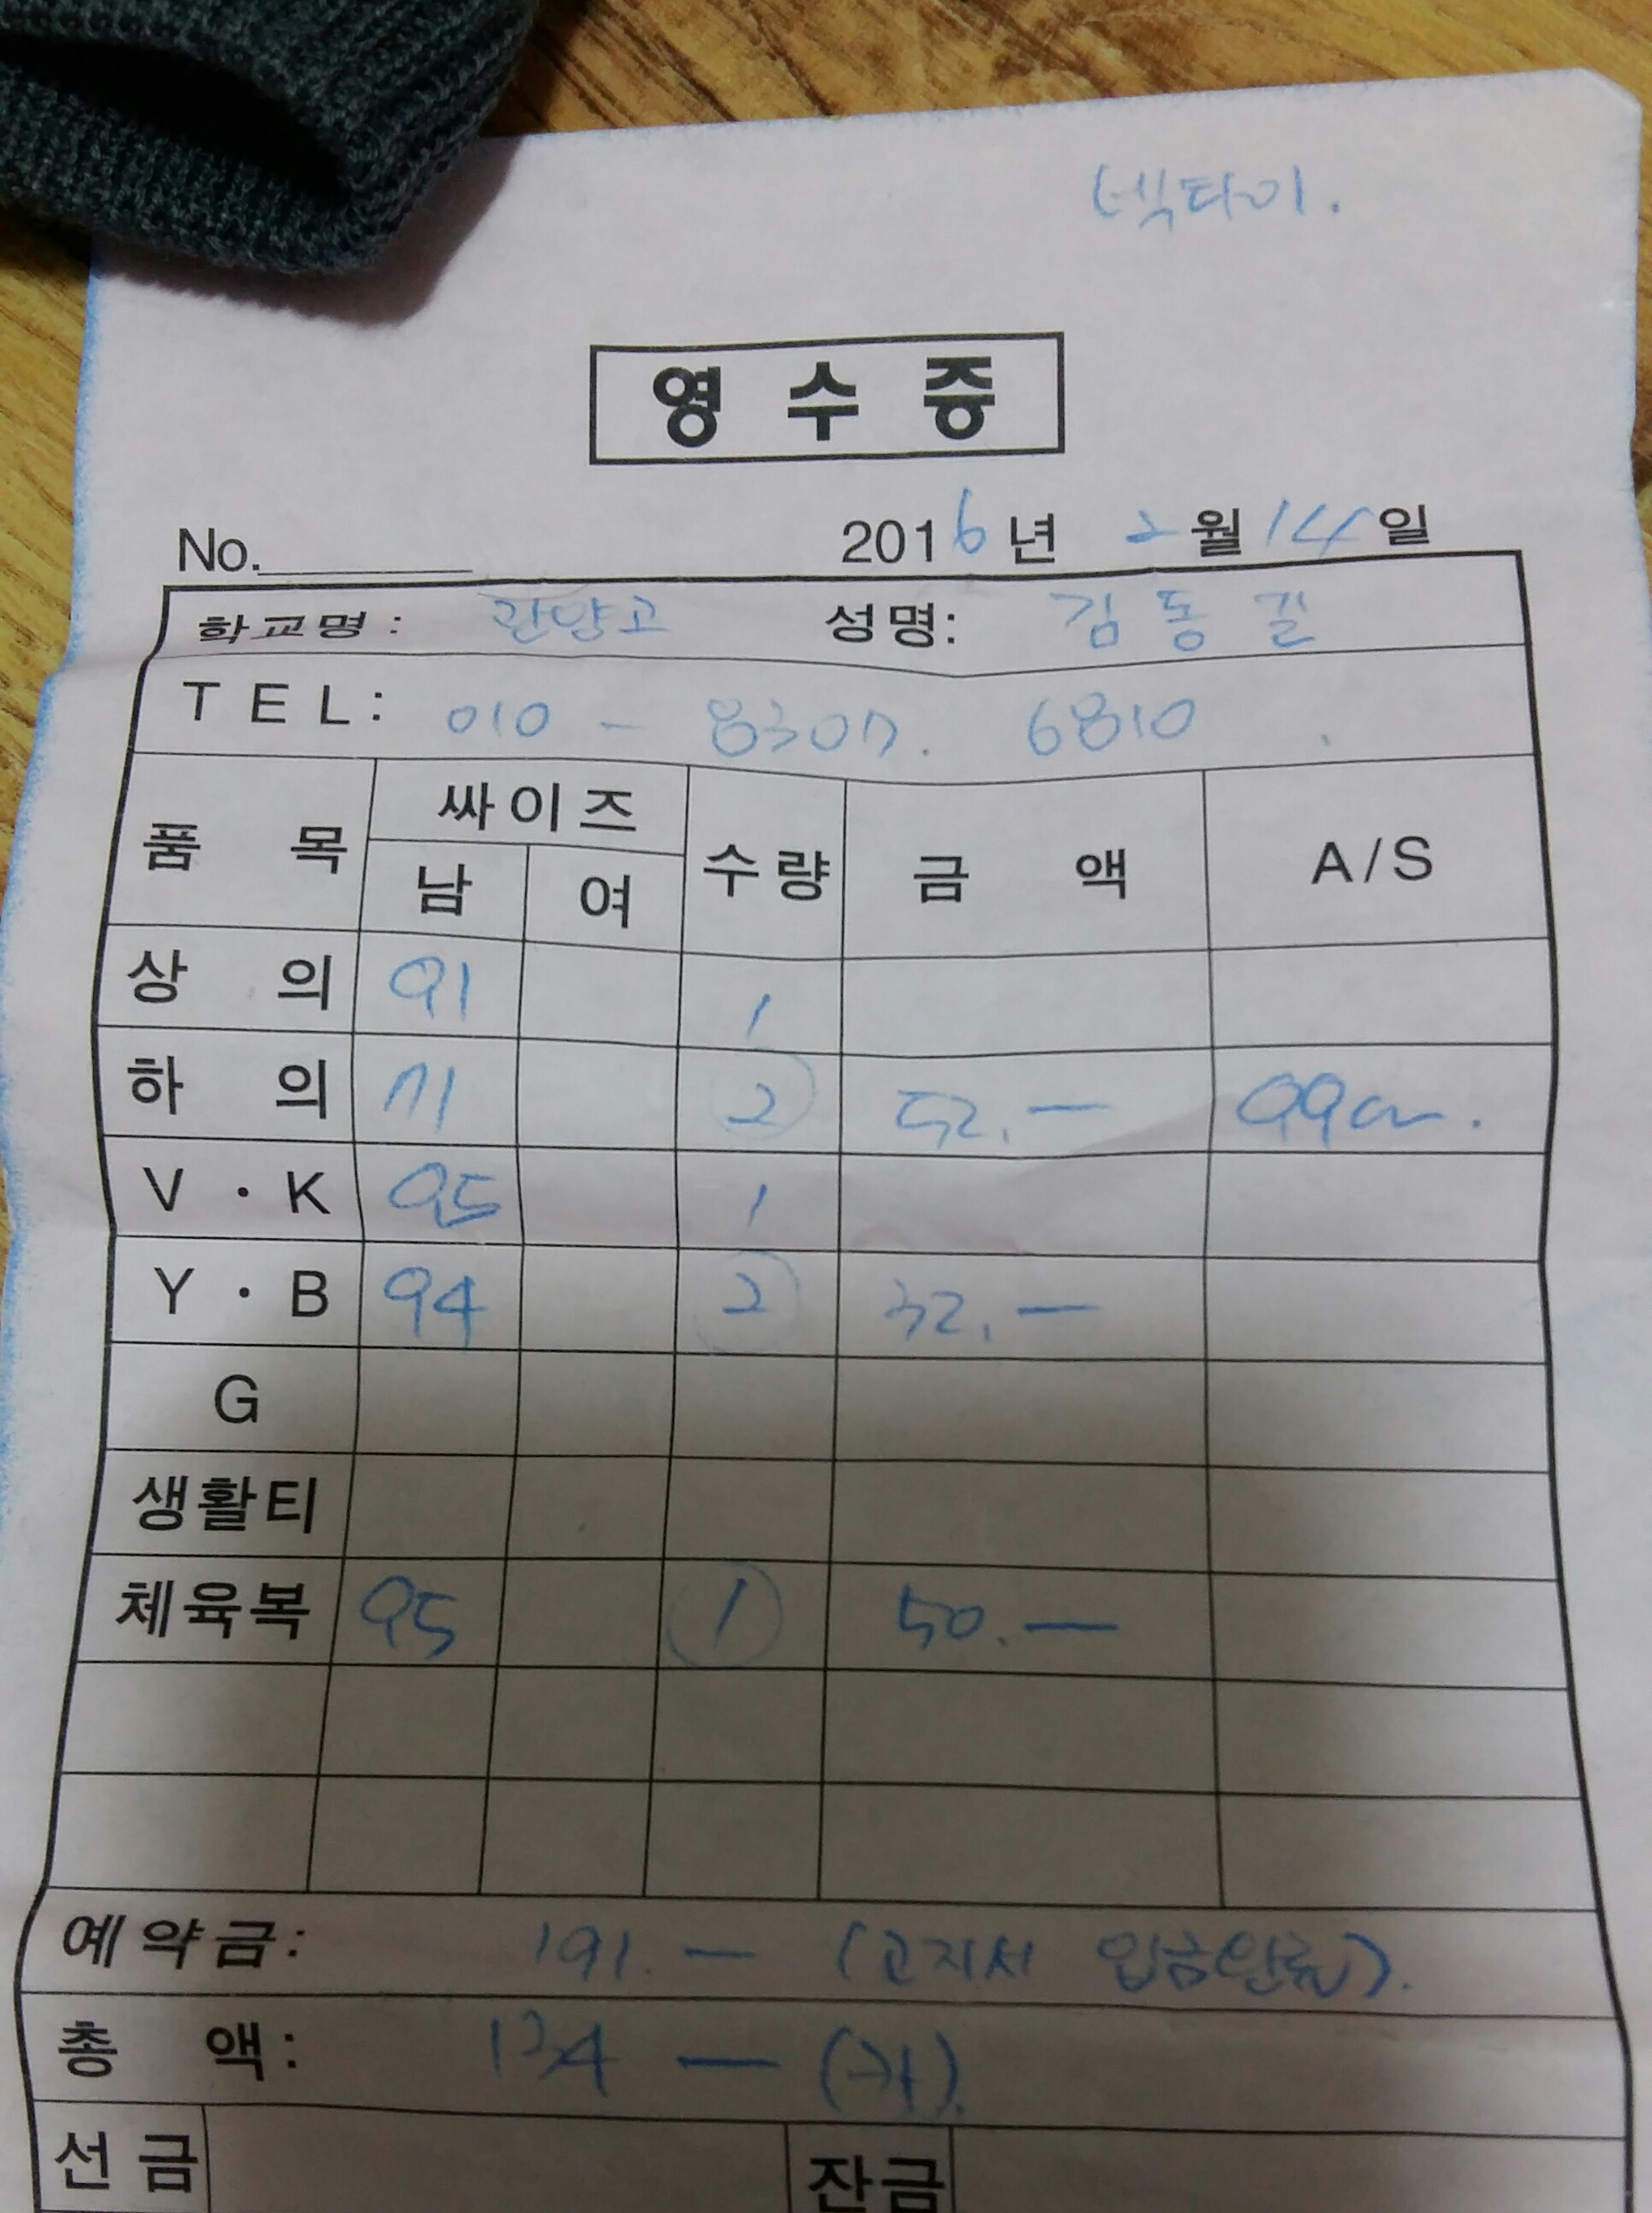 넥타이.
영수증
No. 2016년 2월 14일
학교명: 관양고 성명: 김동길
TEL: 010 - 8307. 6810
품목 싸이즈 수량 금액 A/S
남 여
상의 91 1
하의 71 2 52.— 99cm.
V·K 95 1
Y·B 94 2 32.—
G
생활티
체육복 95 1 50.—
예약금: 191.— (고지서 입금완료).
총액: 134 —
선금 잔금